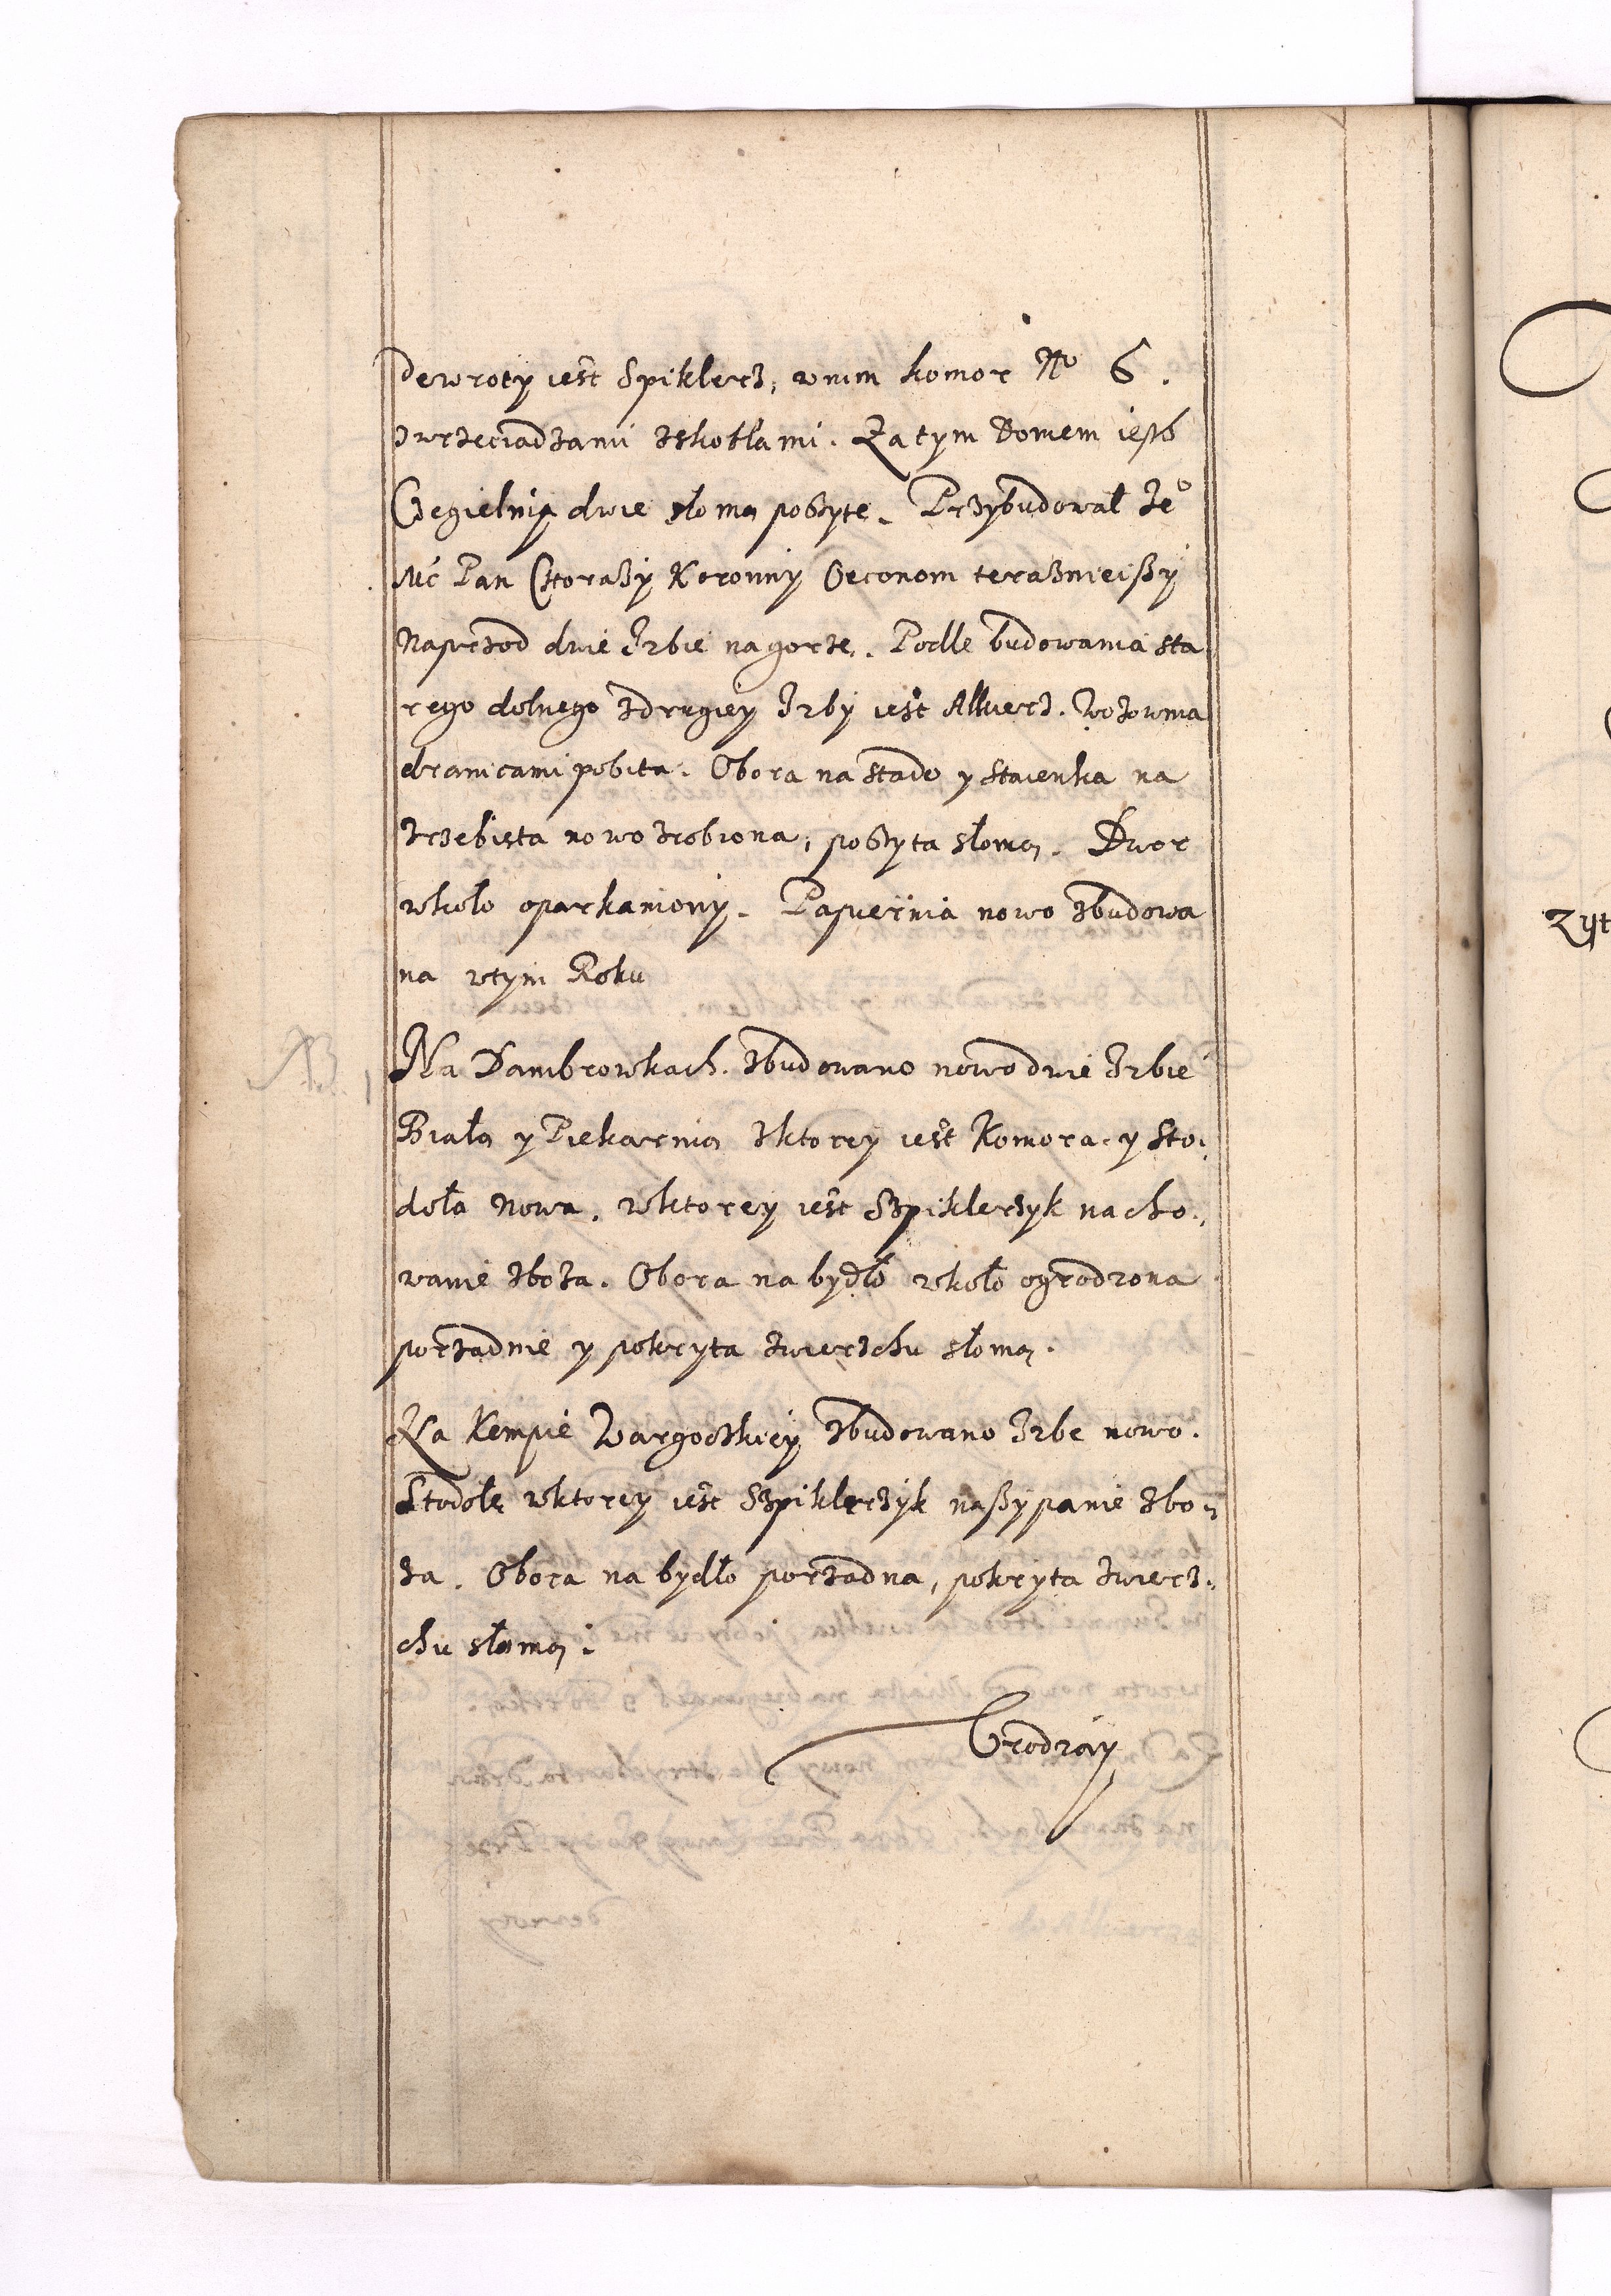 dewroty iest Spiklerz, wnim komor No 6.
zwrzeciadzami zskoblami. Za tym Domem iest
Cegielnią dwie słomą poszyte. Przybudował Je°
Mć Pan Chorąży Koronny Oeconom teraznieiszy
Naprzod dwie Izbie na gorze. Podle budowania sta
rego dolnego zdrugiey Izby iest Alkierz. Wozownia
dranicami pobita. Obora na stado y staienka na
zrzebięta nowo zrobiona, poszyta słomą. Dwor
wkoło oparkaniony. Papiernia nowo zbudowa
na wtym Roku
NB.
Na Dambrowkach. Zbudowano nowo dwie Izbie
Białą y Piekarnią zktorey iest Komora. y Sto-
doła Nowa, wktorey iest Szpiklerzyk na cho-
wanie zboza. Obora na bydło wkoło ogrodzona
porządnie y pokryta zwierzchu słomą.
Na Kempie Wargockiey zbudowano Izbe nowo.
Stodołę wktorey iest Szpiklerzyk na szypanie zbo-
za. Obora na bydło porządna, pokryta zwierz-
chu słomą.
Urodzay
Zyt